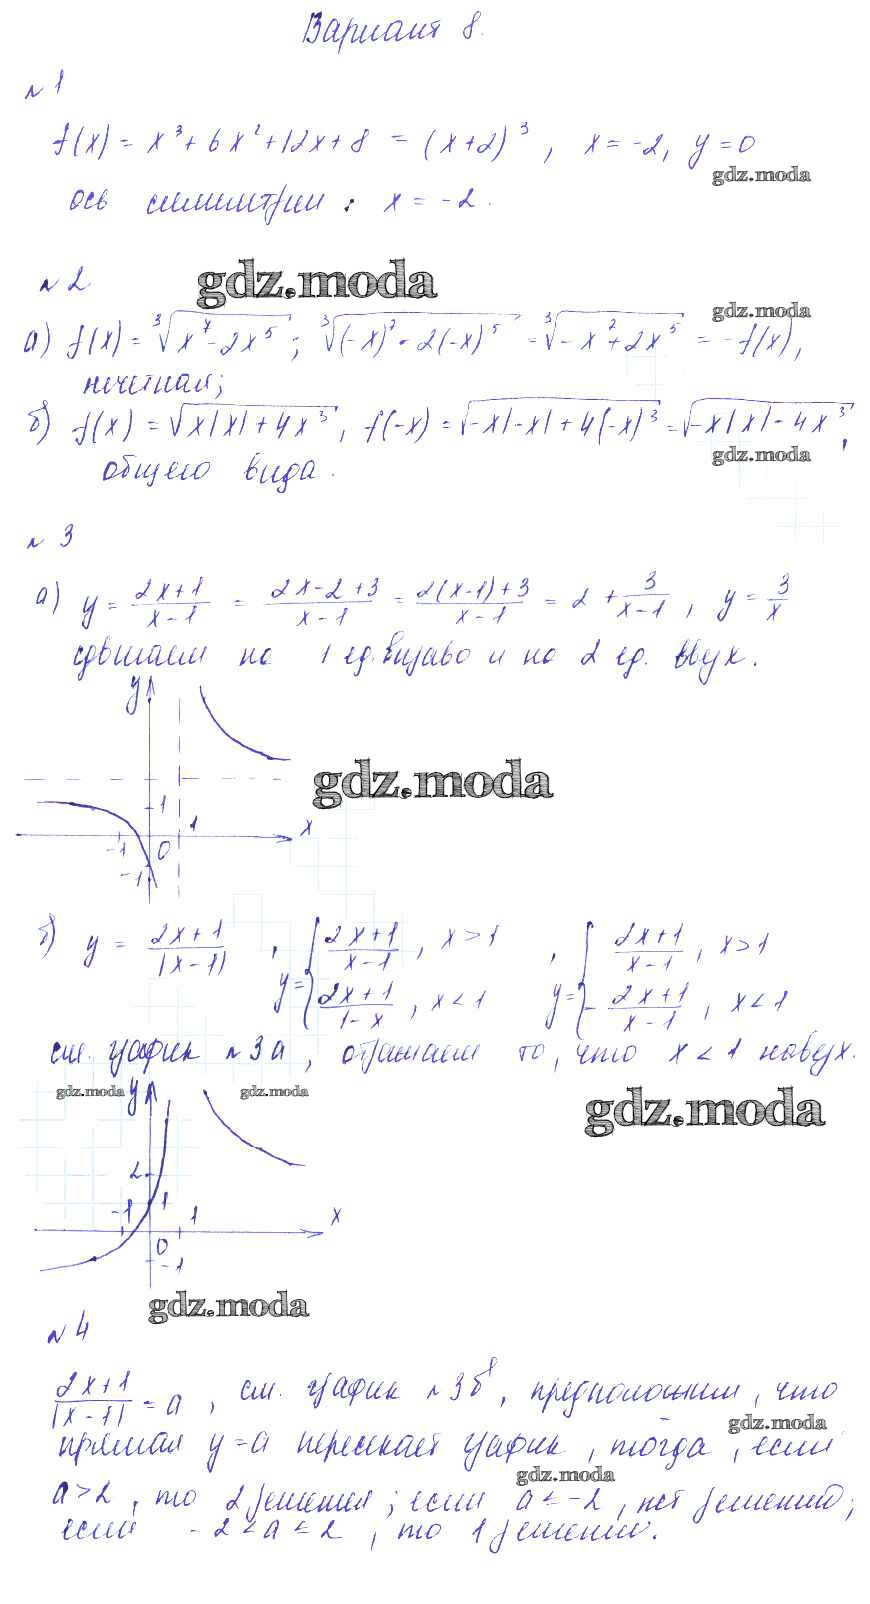 Вариант 8.
№ 1
f(x) = x³ + 6x² + 12x + 8 = (x+2)³, x = -2, y = 0
gdz.moda
ось симметрии: x = -2.
№ 2
gdz.moda
gdz.moda
а) f(x) = ∛(x⁷ - 2x⁵); ∛((-x)⁷ - 2(-x)⁵) = ∛(-x⁷ + 2x⁵) = -f(x),
нечетная;
б) f(x) = √(x|x| + 4x³), f(-x) = √(-x|-x| + 4(-x)³) = √(-x|x| - 4x³),
gdz.moda
общего вида.
№ 3
а) y = (2x+1)/(x-1) = (2x-2+3)/(x-1) = (2(x-1)+3)/(x-1) = 2 + 3/(x-1), y = 3/x
сдвигаем на 1 ед. вправо и на 2 ед. вверх.
y
gdz.moda
1
-1 0 1 x
-1
б) y = (2x+1)/|x-1|, y = { (2x+1)/(x-1), x > 1 ; (2x+1)/(1-x), x < 1 , y = { (2x+1)/(x-1), x > 1 ; -(2x+1)/(x-1), x < 1
см. график № 3а, отражаем то, что x < 1 наверх.
gdz.moda y gdz.moda
gdz.moda
2
-1 1 1 x
0
-1
gdz.moda
№ 4
(2x+1)/|x-1| = a, см. график № 3б, предположим, что
gdz.moda
прямая y = a пересекает график, тогда, если
gdz.moda
a > 2, то 2 решения; если a ≤ -2, нет решений;
если -2 < a ≤ 2, то 1 решение.